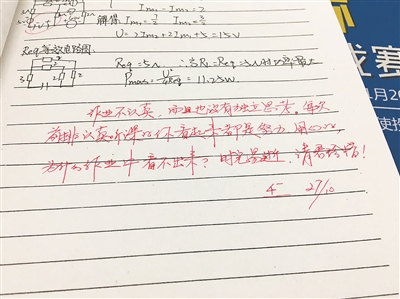 解得
U = 2Im2 + 2Im1 + 5 = 15V
Req等效电路图:
Req = 5Ω ∴当RL = Req = 5Ω时功率最大
Pmax = U²/4Req = 11.25W
作业不认真,而且也没有独立思考。每次
前排认真听课的你看起来都是努力用功的,
为什么作业中看不出来?时光易逝,请君珍惜!
27/10